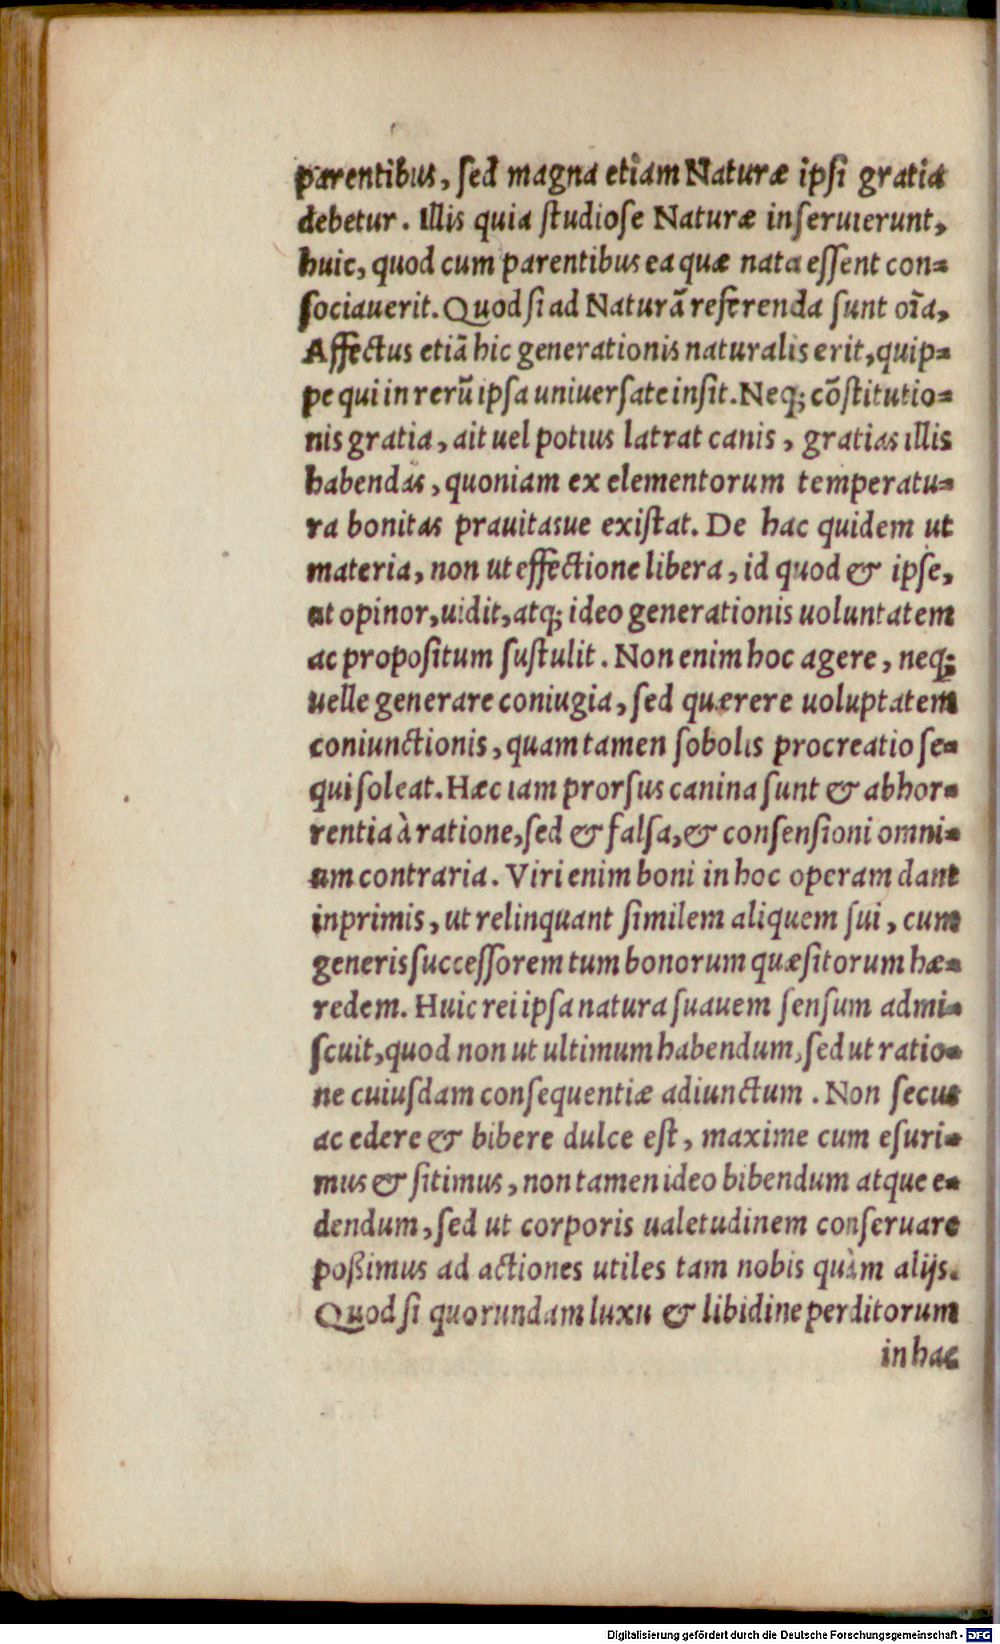 parentibus, ſed magna etiam Naturæ ipſi gratia
debetur. Illis quia ſtudioſe Naturæ inſeruıerunt,
huic, quod cum parentibus ea quæ nata eſſent con=
ſociauerit. Quod ſi ad Naturã referenda ſunt oı̃a,
Affectus etiã hic generationis naturalis erit, quip=
pe qui in rerũ ipſa uniuerſate inſit. Neq; cõſtitutio=
nis gratia, ait uel potius latrat canis, gratias ıllis
habendas, quoniam ex elementorum temperatu=
ra bonitas prauitasue exiſtat. De hac quidem ut
materia, non ut effectione libera, id quod & ipſe,
ut opinor, uidit, atq; ideo generationis uoluntatem
ac propoſitum ſuſtulit. Non enim hoc agere, neq;
uelle generare coniugia, ſed quærere uoluptatem
coniunctionis, quam tamen ſobolıs procreatio ſe=
qui ſoleat. Hæc ıam prorſus canina ſunt & abhor=
rentia à ratione, ſed & falſa, & conſenſioni omni=
um contraria. Viri enim boni in hoc operam dant
inprimis, ut relinquant ſimilem aliquem ſui, cum
generis ſucceſſorem tum bonorum quæſitorum hæ=
redem. Huic rei ipſa natura ſuauem ſenſum admi=
ſcuit, quod non ut ultimum habendum, ſed ut ratio=
ne cuiuſdam conſequentiæ adiunctum. Non ſecus
ac edere & bibere dulce eſt, maxime cum eſuri=
mus & ſitimus, non tamen ideo bibendum atque e=
dendum, ſed ut corporis ualetudinem conſeruare
poßimus ad actiones utiles tam nobis quàm alijs.
Quod ſi quorundam luxu & libidine perditorum
in hac
Digitalisierung gefördert durch die Deutsche Forschungsgemeinschaft - DFG